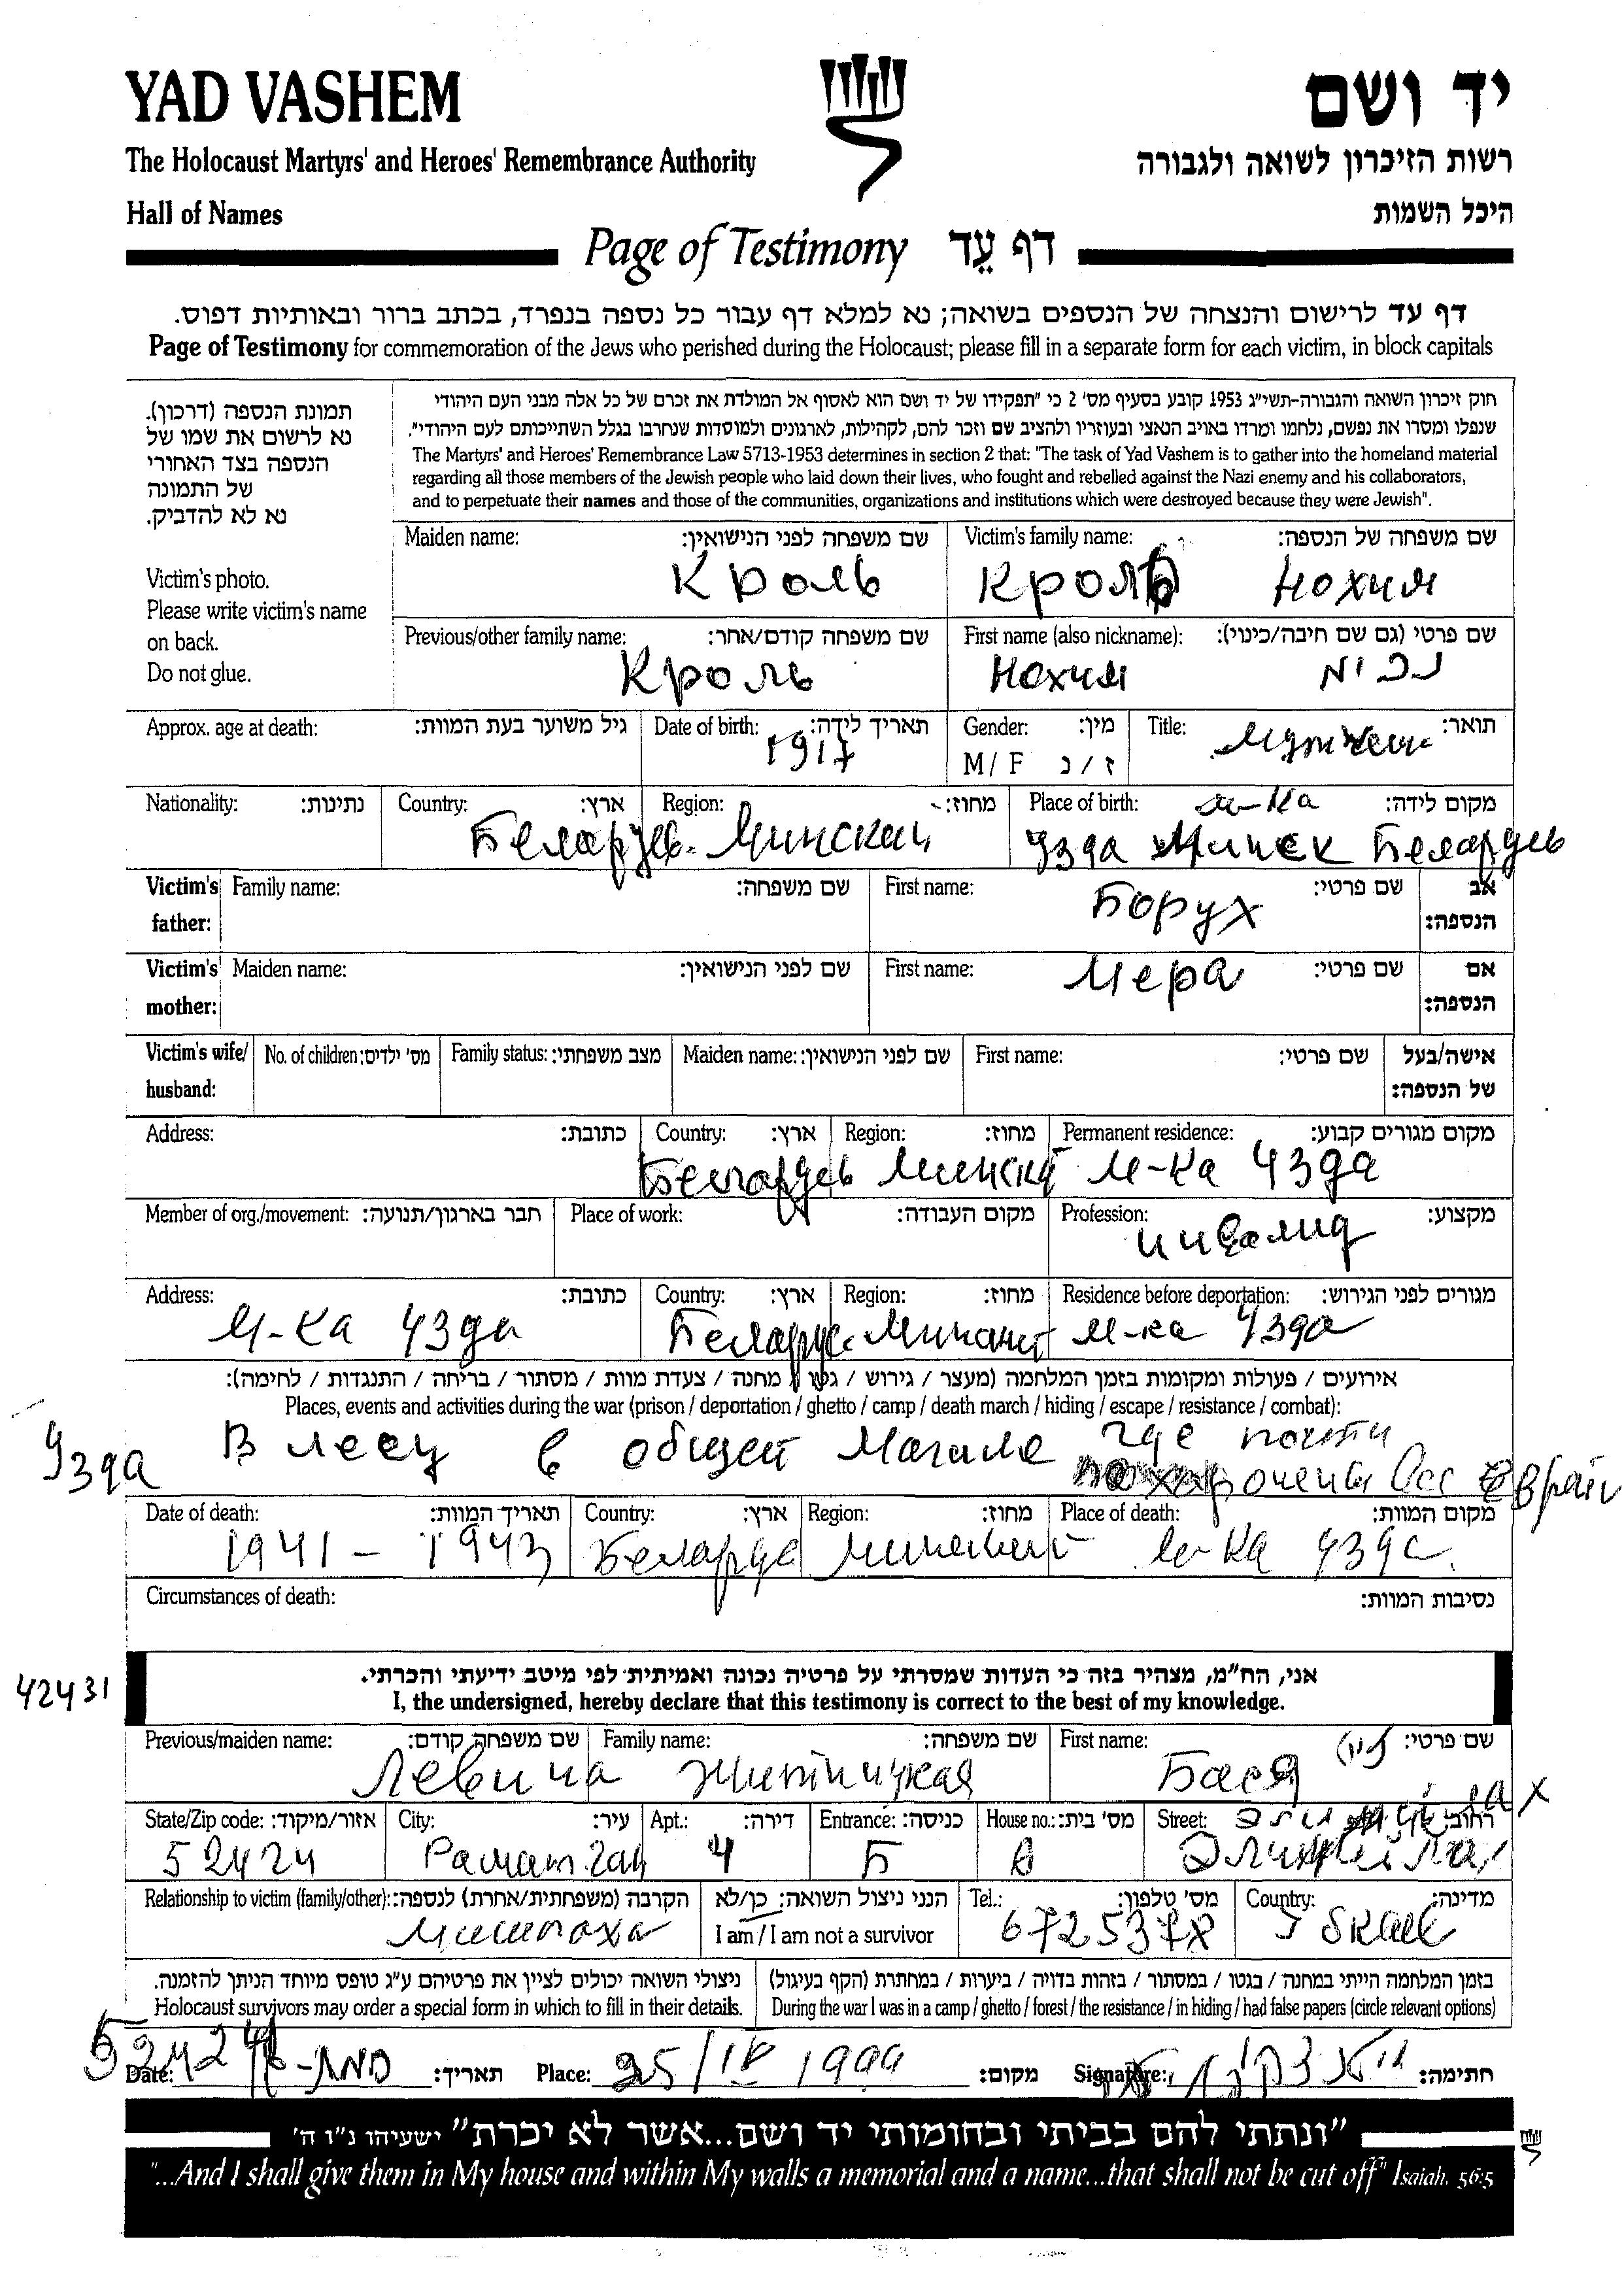 YAD VASHEM
יד ושם
The Holocaust Martyrs' and Heroes' Remembrance Authority
רשות הזיכרון לשואה ולגבורה
Hall of Names
היכל השמות
Page of Testimony דף עֵד
דף עד לרישום והנצחה של הנספים בשואה; נא למלא דף עבור כל נספה בנפרד, בכתב ברור ובאותיות דפוס.
Page of Testimony for commemoration of the Jews who perished during the Holocaust; please fill in a separate form for each victim, in block capitals
תמונת הנספה (דרכון).
נא לרשום את שמו של
הנספה בצד האחורי
של התמונה
נא לא להדביק.
Victim's photo.
Please write victim's name
on back.
Do not glue.
חוק זיכרון השואה והגבורה-תשי"ג 1953 קובע בסעיף מס' 2 כי "תפקידו של יד ושם הוא לאסוף אל המולדת את זכרם של כל אלה מבני העם היהודי
שנפלו ומסרו את נפשם, נלחמו ומרדו באויב הנאצי ובעוזריו ולהציב שם וזכר להם, לקהילות, לארגונים ולמוסדות שנחרבו בגלל השתייכותם לעם היהודי".
The Martyrs' and Heroes' Remembrance Law 5713-1953 determines in section 2 that: "The task of Yad Vashem is to gather into the homeland material
regarding all those members of the Jewish people who laid down their lives, who fought and rebelled against the Nazi enemy and his collaborators,
and to perpetuate their names and those of the communities, organizations and institutions which were destroyed because they were Jewish".
Maiden name: שם משפחה לפני הנישואין: Victim's family name: שם משפחה של הנספה:
Кроль Кроль Нохим
Previous/other family name: שם משפחה קודם/אחר: First name (also nickname): שם פרטי (גם שם חיבה/כינוי):
Кроль Нохим נכימ
Approx. age at death: גיל משוער בעת המוות: Date of birth: תאריך לידה: Gender: מין: Title: תואר:
1917 M / F ז / נ
Nationality: נתינות: Country: ארץ: Region: מחוז: Place of birth: מקום לידה:
м-ка
Беларусь Минский Узда Минск Беларусь
Victim's father: Family name: שם משפחה: First name: שם פרטי: אב הנספה:
Борух
Victim's mother: Maiden name: שם לפני הנישואין: First name: שם פרטי: אם הנספה:
Мера
Victim's wife/ husband: No. of children: מס' ילדים: Family status: מצב משפחתי: Maiden name: שם לפני הנישואין: First name: שם פרטי: אישה/בעל של הנספה:
Address: כתובת: Country: ארץ: Region: מחוז: Permanent residence: מקום מגורים קבוע:
Беларусь Минский м-ка Узда
Member of org./movement: חבר בארגון/תנועה: Place of work: מקום העבודה: Profession: מקצוע:
инвалид
Address: כתובת: Country: ארץ: Region: מחוז: Residence before deportation: מגורים לפני הגירוש:
м-ка Узда Беларусь Минский м-ка Узда
אירועים / פעולות ומקומות בזמן המלחמה (מעצר / גירוש / גטו / מחנה / צעדת מוות / מסתור / בריחה / התנגדות / לחימה):
Places, events and activities during the war (prison / deportation / ghetto / camp / death march / hiding / escape / resistance / combat):
Узда В лесу в общей Могиле где почти
похоронены все Евреи
Date of death: תאריך המוות: Country: ארץ: Region: מחוז: Place of death: מקום המוות:
1941 - 1943 Беларусь Минский м-ка Узда
Circumstances of death: נסיבות המוות:
42431
אני, הח"מ, מצהיר בזה כי העדות שמסרתי על פרטיה נכונה ואמיתית לפי מיטב ידיעתי והכרתי.
I, the undersigned, hereby declare that this testimony is correct to the best of my knowledge.
Previous/maiden name: שם משפחה קודם: Family name: שם משפחה: First name: שם פרטי:
Левина Житницкая Бася
State/Zip code: אזור/מיקוד: City: עיר: Apt.: דירה: Entrance: כניסה: House no.: מס' בית: Street: רחוב:
52424 Рамат Ган 4 Б 8
Relationship to victim (family/other): הקרבה (משפחתית/אחרת) לנספה: הנני ניצול השואה: כן/לא Tel.: מס' טלפון: Country: מדינה:
I am / I am not a survivor
Мишпоха 6725378
בזמן המלחמה הייתי במחנה / בגטו / במסתור / בזהות בדויה / ביערות / במחתרת (הקף בעיגול)
ניצולי השואה יכולים לציין את פרטיהם ע"ג טופס מיוחד הניתן להזמנה.
Holocaust survivors may order a special form in which to fill in their details.
During the war I was in a camp / ghetto / forest / the resistance / in hiding / had false papers (circle relevant options)
Date: תאריך: Place: 25/IV 1999 מקום: Signature: חתימה:
"ונתתי להם בביתי ובחומותי יד ושם...אשר לא יכרת" ישעיהו נ"ו ה'
"...And I shall give them in My house and within My walls a memorial and a name...that shall not be cut off" Isaiah. 56:5